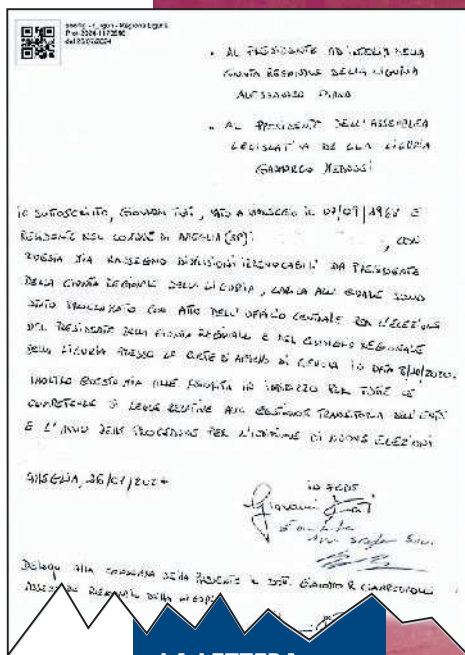 Regione Liguria
• AL PRESIDENTE AD INTERIM DELLA
GIUNTA REGIONALE DELLA LIGURIA
ALESSANDRO PIANA
• AL PRESIDENTE DELL'ASSEMBLEA
LEGISLATIVA DELLA LIGURIA
GIANMARCO MEDUSEI
IO SOTTOSCRITTO, GIOVANNI TOTI, NATO A VIAREGGIO IL 07/09/1968 E
RESIDENTE NEL COMUNE DI AMEGLIA (SP), CON
QUESTA MIA RASSEGNO DIMISSIONI IRREVOCABILI DA PRESIDENTE
DELLA GIUNTA REGIONALE DELLA LIGURIA, CARICA ALLA QUALE SONO
STATO PROCLAMATO CON ATTO DELL'UFFICIO CENTRALE PER L'ELEZIONE
DEL PRESIDENTE DELLA GIUNTA REGIONALE E DEL CONSIGLIO REGIONALE
DELLA LIGURIA PRESSO LA CORTE D'APPELLO DI GENOVA IN DATA 8/10/2020.
INOLTRO QUESTA MIA ALLE PER TUTTE LE
COMPETENZE DI LEGGE RELATIVE ALLA GESTIONE TRANSITORIA DELL'ENTE
E L'AVVIO DELLE PROCEDURE PER L'INDIZIONE DI NUOVE ELEZIONI
AMEGLIA, 26/07/2024
IN FEDE
Giovanni Toti
DELEGO ALLA CONSEGNA DELLA PRESENTE IL DOTT. GIACOMO R. GIAMPEDRONE
ASSESSORE REGIONALE
LA LETTERA